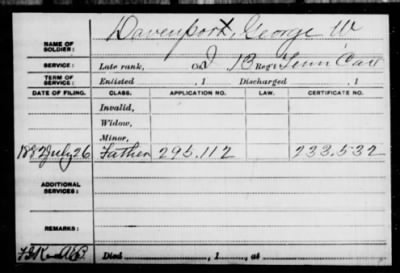 Davenport, George W
NAME OF SOLDIER:
SERVICE: Late rank, Co. I, 13 Reg't Tenn Cav
TERM OF SERVICE: Enlisted , 1 Discharged , 1
DATE OF FILING. CLASS. APPLICATION NO. LAW. CERTIFICATE NO.
Invalid,
Widow,
Minor,
1882 July 26 Father 295.112 233.532
ADDITIONAL SERVICES:
REMARKS:
Died , 1 , at